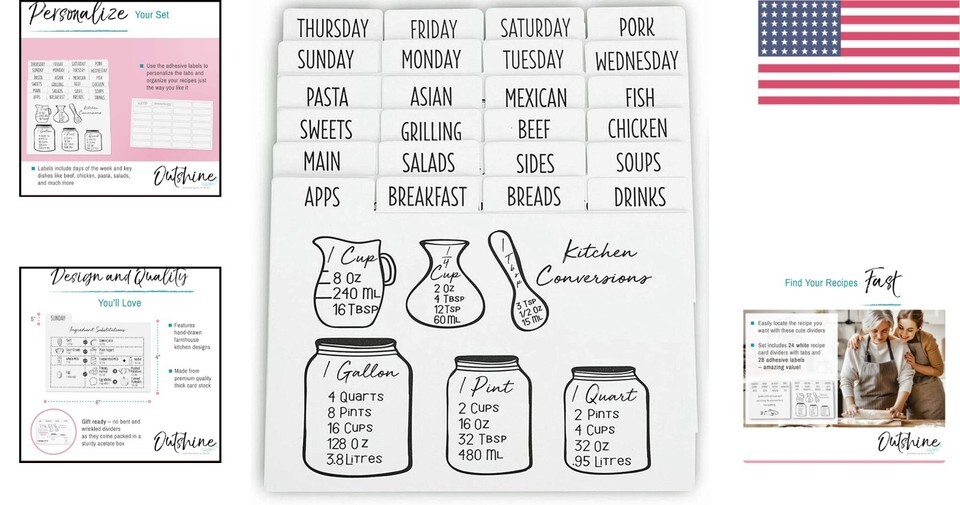 Personalize Your Set
Use the adhesive labels to
personalize the tabs and
organize your recipes just
the way you like it
Labels include days of the week and key
dishes like beef, chicken, pasta, salads,
and much more
Outshine
Design and Quality
You'll Love
5"
SUNDAY
Ingredient Substitutions
4"
6"
Features
hand-drawn
farmhouse
kitchen designs
Made from
premium quality
thick card stock
Gift ready – no bent and
wrinkled dividers
as they come packed in a
sturdy acetate box
Outshine
THURSDAY FRIDAY SATURDAY PORK
SUNDAY MONDAY TUESDAY WEDNESDAY
PASTA ASIAN MEXICAN FISH
SWEETS GRILLING BEEF CHICKEN
MAIN SALADS SIDES SOUPS
APPS BREAKFAST BREADS DRINKS
Kitchen
Conversions
1 Cup
8 Oz
240 mL
16 Tbsp
1/4
Cup
2 Oz
4 Tbsp
12 Tsp
60 mL
1 Tbsp
3 Tsp
1/2 Oz
15 mL
1 Gallon
4 Quarts
8 Pints
16 Cups
128 Oz
3.8 Litres
1 Pint
2 Cups
16 Oz
32 Tbsp
480 mL
1 Quart
2 Pints
4 Cups
32 Oz
.95 Litres
Find Your Recipes Fast
Easily locate the recipe you
want with these cute dividers
Set includes 24 white recipe
card dividers with tabs and
28 adhesive labels
– amazing value!
Outshine